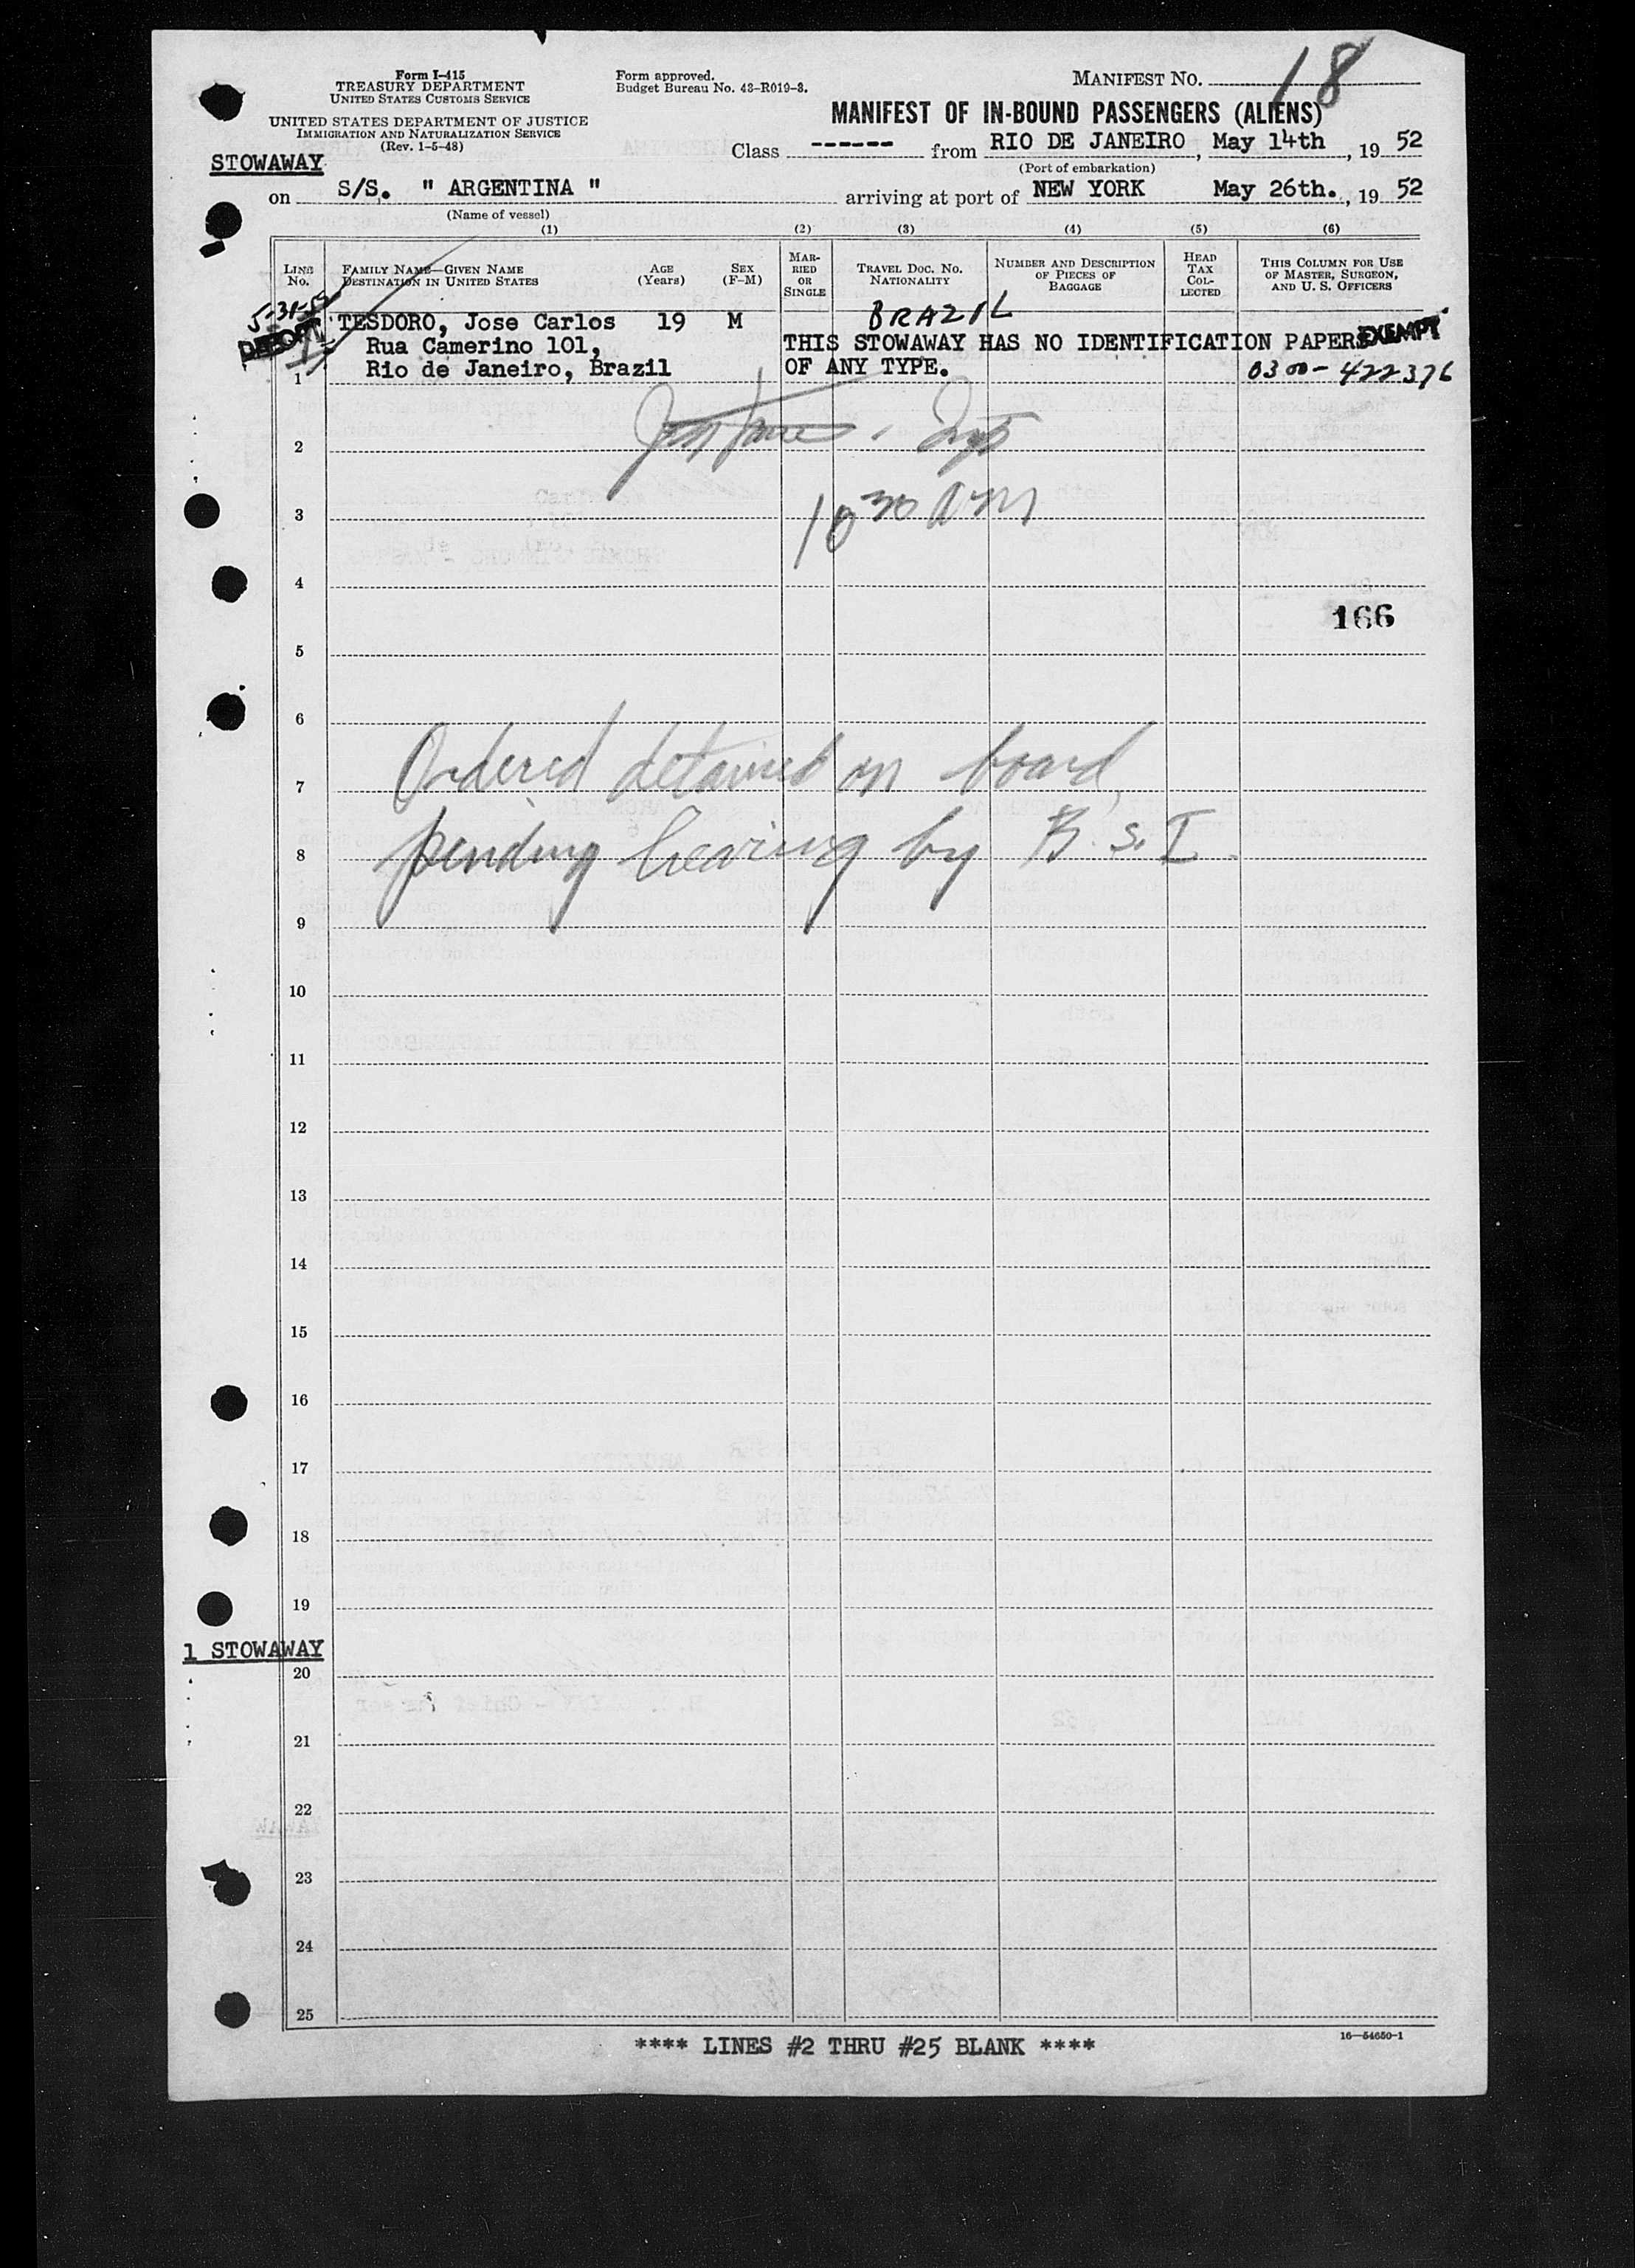 Form I-415
TREASURY DEPARTMENT
UNITED STATES CUSTOMS SERVICE
UNITED STATES DEPARTMENT OF JUSTICE
IMMIGRATION AND NATURALIZATION SERVICE
(Rev. 1-5-48)
Form approved.
Budget Bureau No. 43-R019-3.
MANIFEST NO. 18
MANIFEST OF IN-BOUND PASSENGERS (ALIENS)
STOWAWAY
Class ------ from RIO DE JANEIRO, May 14th, 19 52
(Port of embarkation)
on S/S. " ARGENTINA " arriving at port of NEW YORK May 26th., 19 52
(Name of vessel)
(1) (2) (3) (4) (5) (6)
LINE No.
FAMILY NAME—GIVEN NAME
DESTINATION IN UNITED STATES
AGE (Years)
SEX (F-M)
MARRIED OR SINGLE
TRAVEL DOC. NO. NATIONALITY
NUMBER AND DESCRIPTION OF PIECES OF BAGGAGE
HEAD TAX COLLECTED
THIS COLUMN FOR USE OF MASTER, SURGEON, AND U. S. OFFICERS
5-31-52
DEPORT
TESDORO, Jose Carlos 19 M BRAZIL
Rua Camerino 101, THIS STOWAWAY HAS NO IDENTIFICATION PAPERS EXEMPT
1 Rio de Janeiro, Brazil OF ANY TYPE. 0300-422376
2
10 30 AM
3
4
166
5
6
Ordered detained on board,
7
pending hearing by B.S.I.
8
9
10
11
12
13
14
15
16
17
18
19
1 STOWAWAY
20
21
22
23
24
25
**** LINES #2 THRU #25 BLANK ****
16—54650-1